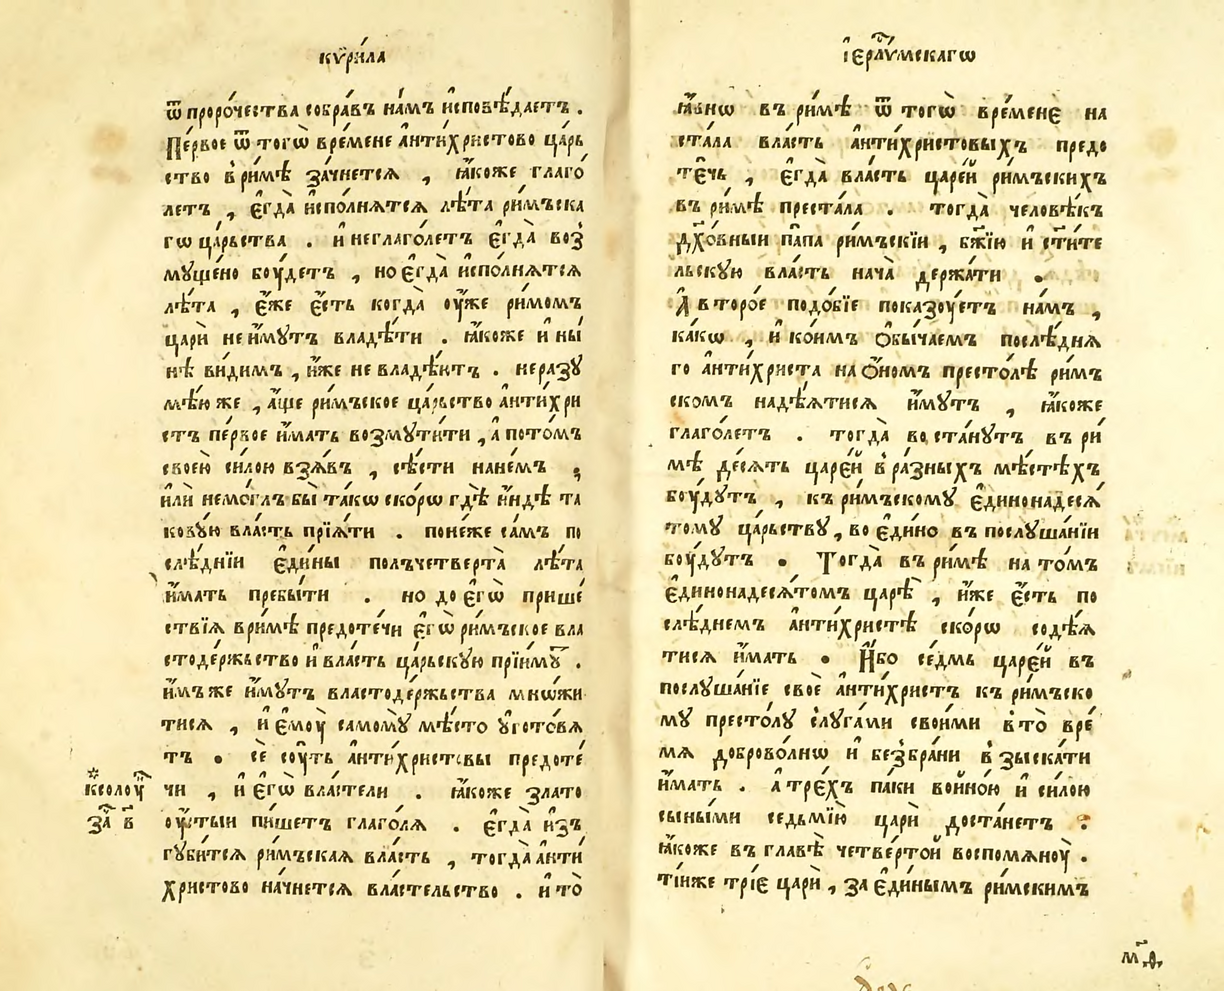 кѷри́ла
ѿ проро́чества собра́въ на́мъ и҆сповѣ́даетъ .
Пе́рвое ѿ тогѡ̀ вре́мене а҆нти́христово ца́рь
ство в̾ри́мѣ зачне́тсѧ , ꙗ҆́коже глаго́
летъ , є҆гда̀ и҆спо́лнѧтсѧ лѣ́та ри́мъска
гѡ ца́рьства . и҆ неглаго́летъ є҆гда̀ воз̾
мꙋще́но бꙋ́детъ , но є҆гда̀ и҆спо́лнѧтсѧ
лѣ́та , є҆́же є҆́сть когда̀ оу҆́же ри́момъ
цари̑ не и҆́мꙋтъ владѣ́ти . ꙗ҆́коже и҆ ны́
нѣ ви́димъ , и҆́же не владѣ́ютъ . не разꙋ
мѣ́ю же , а҆́ще ри́мъское ца́рьство а҆нти́хри
стъ пе́рвое и҆́мать возмꙋти́ти , а҆ пото́мъ
свое́ю си́лою взѧ́въ , сѣ́сти нане́мъ ;
и҆лѝ немо́глъ бы̀ та́кѡ ско́рѡ гдѣ̀ и҆́ндѣ та
ковꙋ́ю вла́сть прїѧ́ти . поне́же са́мъ по
слѣ́днїи є҆ди́ны полъчетверта̀ лѣ́та
и҆́мать пребы́ти . но до є҆гѡ̀ прише́
ствїѧ в ри́мѣ предоте́чи є҆гѡ̀ ри́мъское вла
стодержьство и҆ вла́сть ца́рьскꙋю прїи́мꙋ .
и҆́мъже и҆́мꙋтъ властоде́ржьства мнѡжи
тисѧ , и҆ є҆мꙋ̀ самомꙋ̀ мѣ́сто ᲂуготовѧ
тъ . сѐ сꙋ́ть а҆нти́христовы предоте́
чи , и҆ є҆гѡ̀ вла́стели . ꙗ҆́коже злато
*
к солоу҆
за҄ в҃
оу҆́стыи пи́шетъ глаго́лѧ . є҆гда̀ и҆зъ
гꙋ́битсѧ ри́мъскаѧ вла́сть , тогда̀ а҆нти́
христово на́чнетсѧ вла́стельство . и҆ то̀
і҆ерⷭ҇лимскагѡ
ꙗ҆́внѡ въ ри́мѣ ѿ тогѡ̀ вре́мене на
ста́ла вла́сть а҆нти́христовыхъ предо
те́чь , є҆гда̀ вла́сть царе́й ри́мъскихъ
въ ри́мѣ преста́ла . тогда̀ человѣ́къ
дꙋхо́вныи па́па ри́мъскїи , бж҃їю и҆ ст҃и́те
льскꙋю вла́сть нача̀ держа́ти .
А҆ второ́е подо́бїе показꙋ́етъ на́мъ ,
ка́кѡ , и҆ ко́имъ ѻ҆бы́чаемъ послѣ́днѧ
го а҆нти́христа на ѻ҆́ном престо́лѣ ри́мъ
ском надѣ́ѧтисѧ и҆́мꙋтъ , ꙗ҆́коже
глаго́летъ . тогда̀ воста́нꙋтъ въ ри́
мѣ де́сѧть царе́й в̾ ра́зныхъ мѣ́стѣхъ
бꙋ́дꙋтъ , къ ри́мъскомꙋ є҆динонадесѧ́
томꙋ ца́рьствꙋ , во є҆ди́но въ послꙋша́нїи
бꙋ́дꙋтъ . Тогда̀ въ ри́мѣ на то́мъ
є҆динонадесѧ́томъ царѣ̀ , и҆́же є҆́сть по
слѣ́днемъ а҆нти́христѣ ско́рѡ содѣ́ѧ
тисѧ и҆́мать . И҆́бо се́дмь царе́й въ
послꙋша́нїе своѐ а҆нти́христъ къ ри́мъско
мꙋ престо́лꙋ слꙋга́ми свои́ми в̾то̀ вре́
мѧ доброво́лнѡ и҆ без̾бра́ни в̾зыска́ти
и҆́мать . а҆ тре́хъ па́ки войно́ю и҆ си́лою
сыны́ми седьмїю цари̑ доста́нетъ :
ꙗ҆́коже въ главѣ̀ четве́ртой воспомѧнꙋ̀ .
ті́иже трі́е цари̑ , за є҆ди́нымъ ри́мскимъ